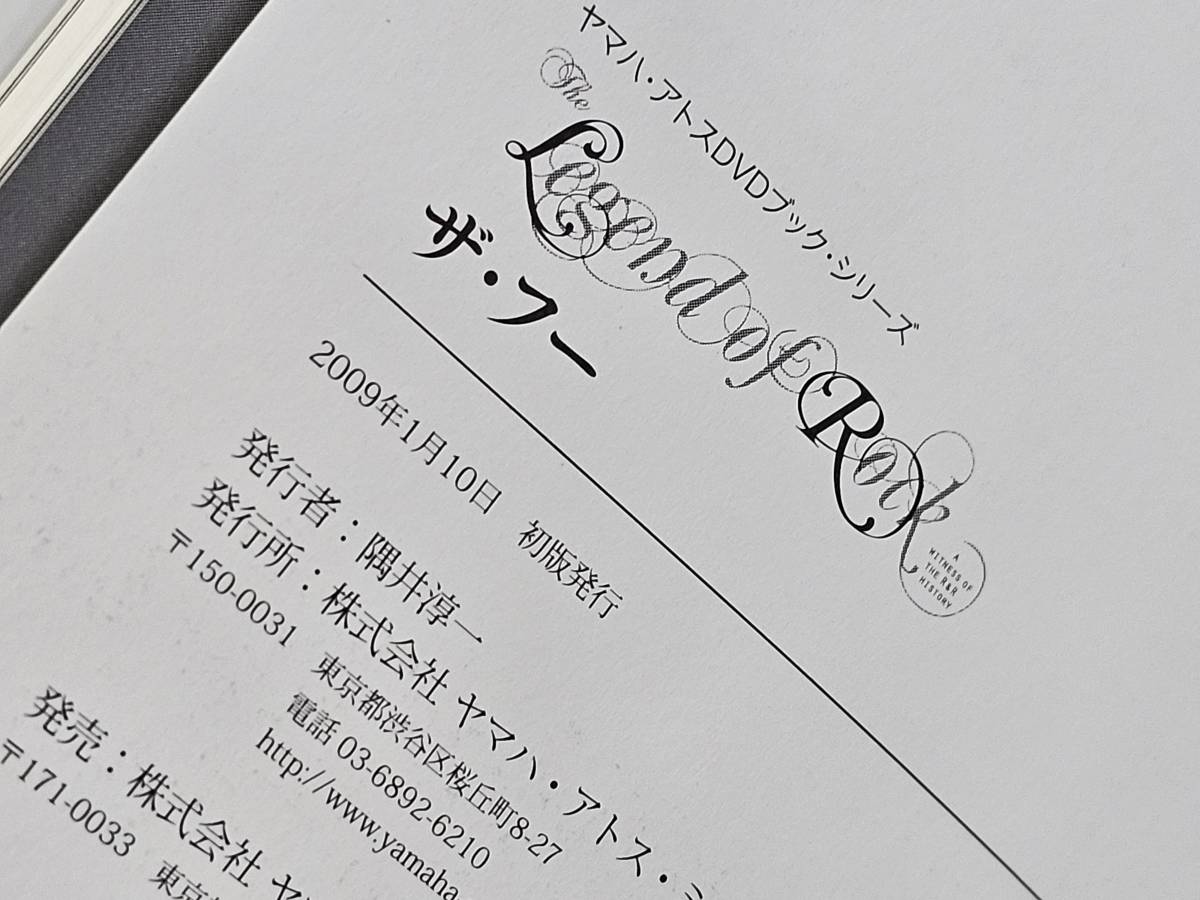 ヤマハ・アトスDVDブック・シリーズ
The
Legend of Rock
A
WITNESS OF
THE R&R
HISTORY
ザ・フー
2009年1月10日 初版発行
発行者：隅井淳一
発行所：株式会社 ヤマハ・アトス・ミ
〒150-0031 東京都渋谷区桜丘町8-27
電話 03-6892-6210
http://www.yamaha
発売：株式会社 ヤ
〒171-0033 東京